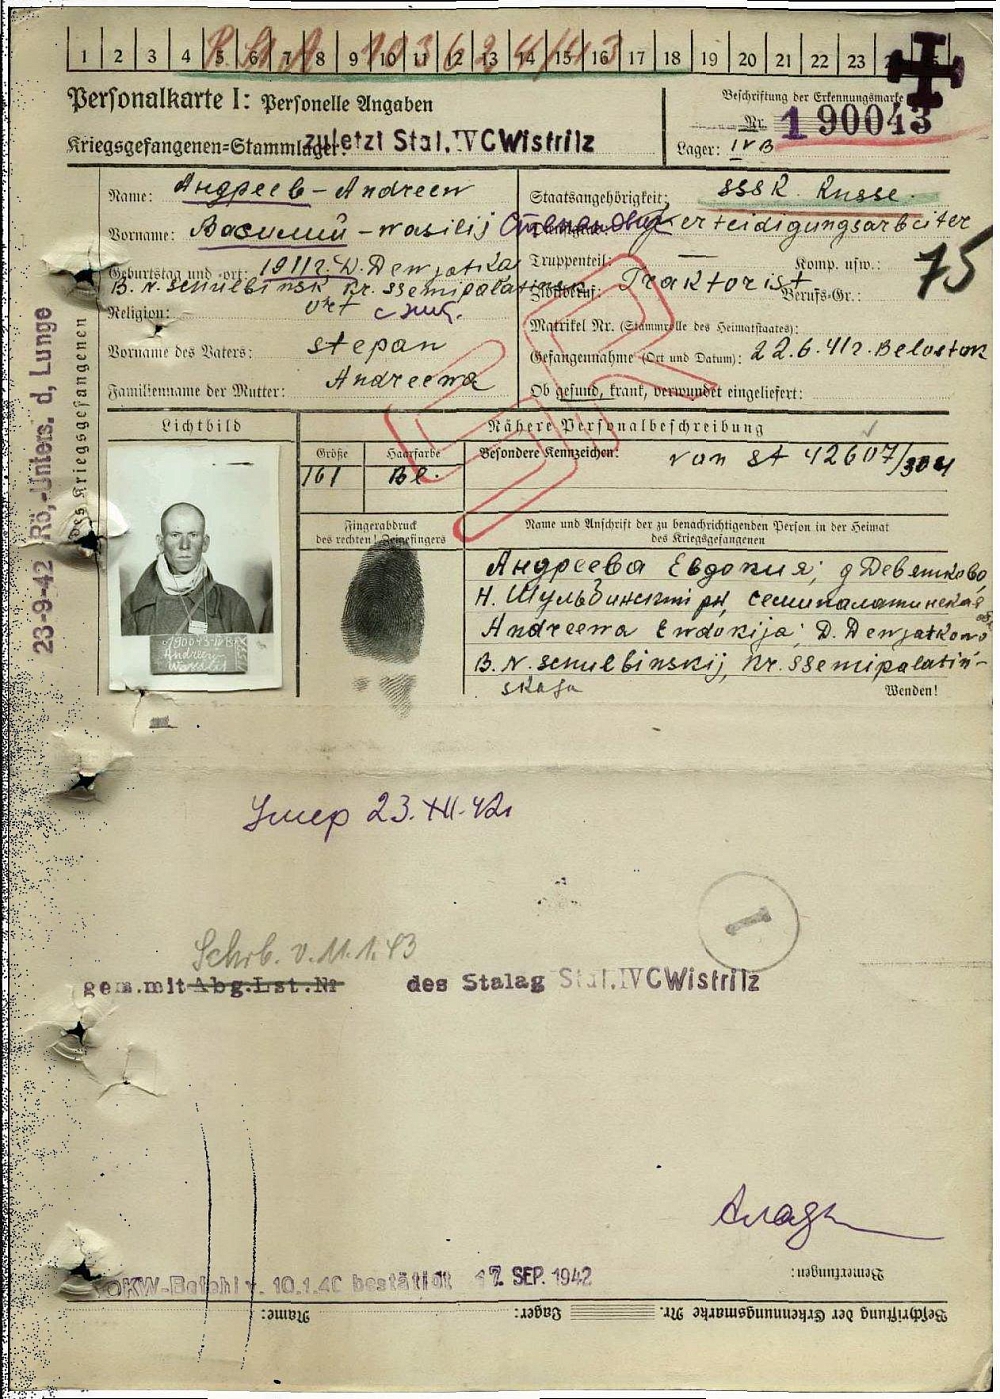 1 2 3 4 5 6 7 8 9 10 11 12 13 14 15 16 17 18 19 20 21 22 23
Personalkarte I: Personelle Angaben
Beschriftung der Erkennungsmarke
Nr. 190043
Kriegsgefangenen=Stammlager: zuletzt Stal. IV C Wistritz
Lager: IV B
Name: Андреев - Andreew
Staatsangehörigkeit: SSSR. Russe.
Vorname: Василий - Wasilij
Verteidigungsarbeiter
Geburtstag und -ort: 1911 г. D. Dewjatka
Truppenteil: — Komp. usw.:
75
B. N. Schulbinsk Kr. Ssemipalatinsk
Zivilberuf: Traktorist Berufs-Gr.:
Religion: ort
Matrikel Nr. (Stammrolle des Heimatstaates):
Vorname des Vaters: Stepan
Gefangennahme (Ort und Datum): 22.6.41 г. Belostok
Familienname der Mutter: Andreewa
Ob gesund, krank, verwundet eingeliefert:
des Kriegsgefangenen
23-9-42 Rö.-Unters. d. Lunge
Lichtbild
Nähere Personalbeschreibung
Größe Haarfarbe Besondere Kennzeichen:
161 Bl. von St 42607/304
Fingerabdruck
des rechten! Zeigefingers
Name und Anschrift der zu benachrichtigenden Person in der Heimat
des Kriegsgefangenen
Андреева Евдокия; д Девятково,
Н. Шульбинский рн, Семипалатинская
Andreewa Ewdokija; D. Dewjatkowo
B. N. Schulbinskij, Kr. Ssemipalatin-
skaja
Wenden!
190043 IV B
Andreew
Wassilij
Умер 23.XII.42г
Schrb. v. 11.1.43
gem. mit Abg. Lst. Nr des Stalag Stal. IV C Wistritz
OKW-Befehl v. 10.1.40 bestätigt 17. SEP. 1942
Bemerkungen:
Name: Lager: Beschriftung der Erkennungsmarke Nr.